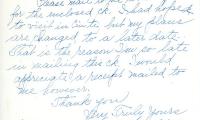 Please mail to me
for the enclosed ck. I had hoped
visit in Cinti, but my plans
are changed to a later date.
That is the reason I'm so late
in mailing this ck. I would
appreciate a receipt mailed to
me however.
Thank you
Very Truly Yours